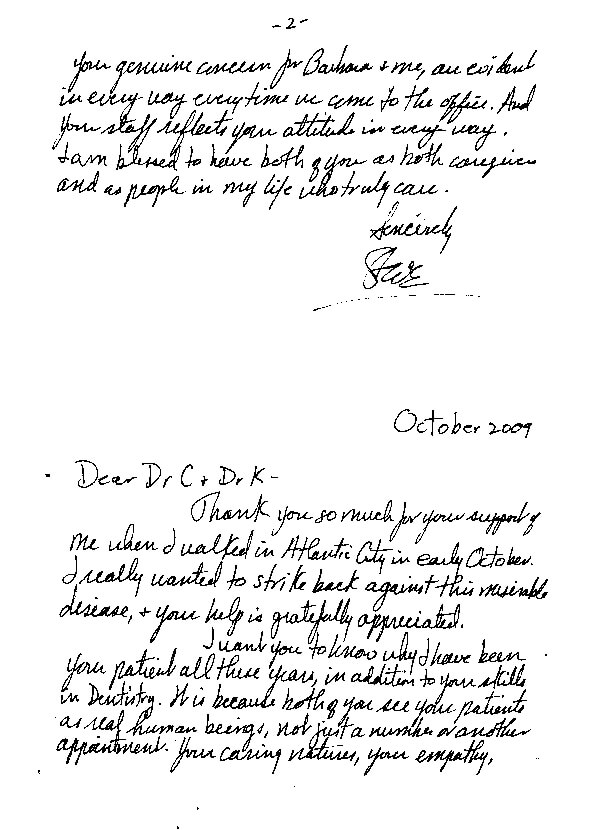 - 2 -
your genuine concern for Barbara + me, are evident
in every way everytime we come to the office. And
your staff reflects your attitude in every way.
I am blessed to have both of you as both caregivers
and as people in my life who truly care.
Sincerely
October 2009
Dear Dr C + Dr K -
Thank you so much for your support of
me when I walked in Atlantic City in early October.
I really wanted to strike back against this miserable
disease, + your help is gratefully appreciated.
I want you to know why I have been
your patient all these years, in addition to your skills
in Dentistry. It is because both of you see your patients
as real human beings, not just a number or another
appointment. Your caring natures, your empathy,